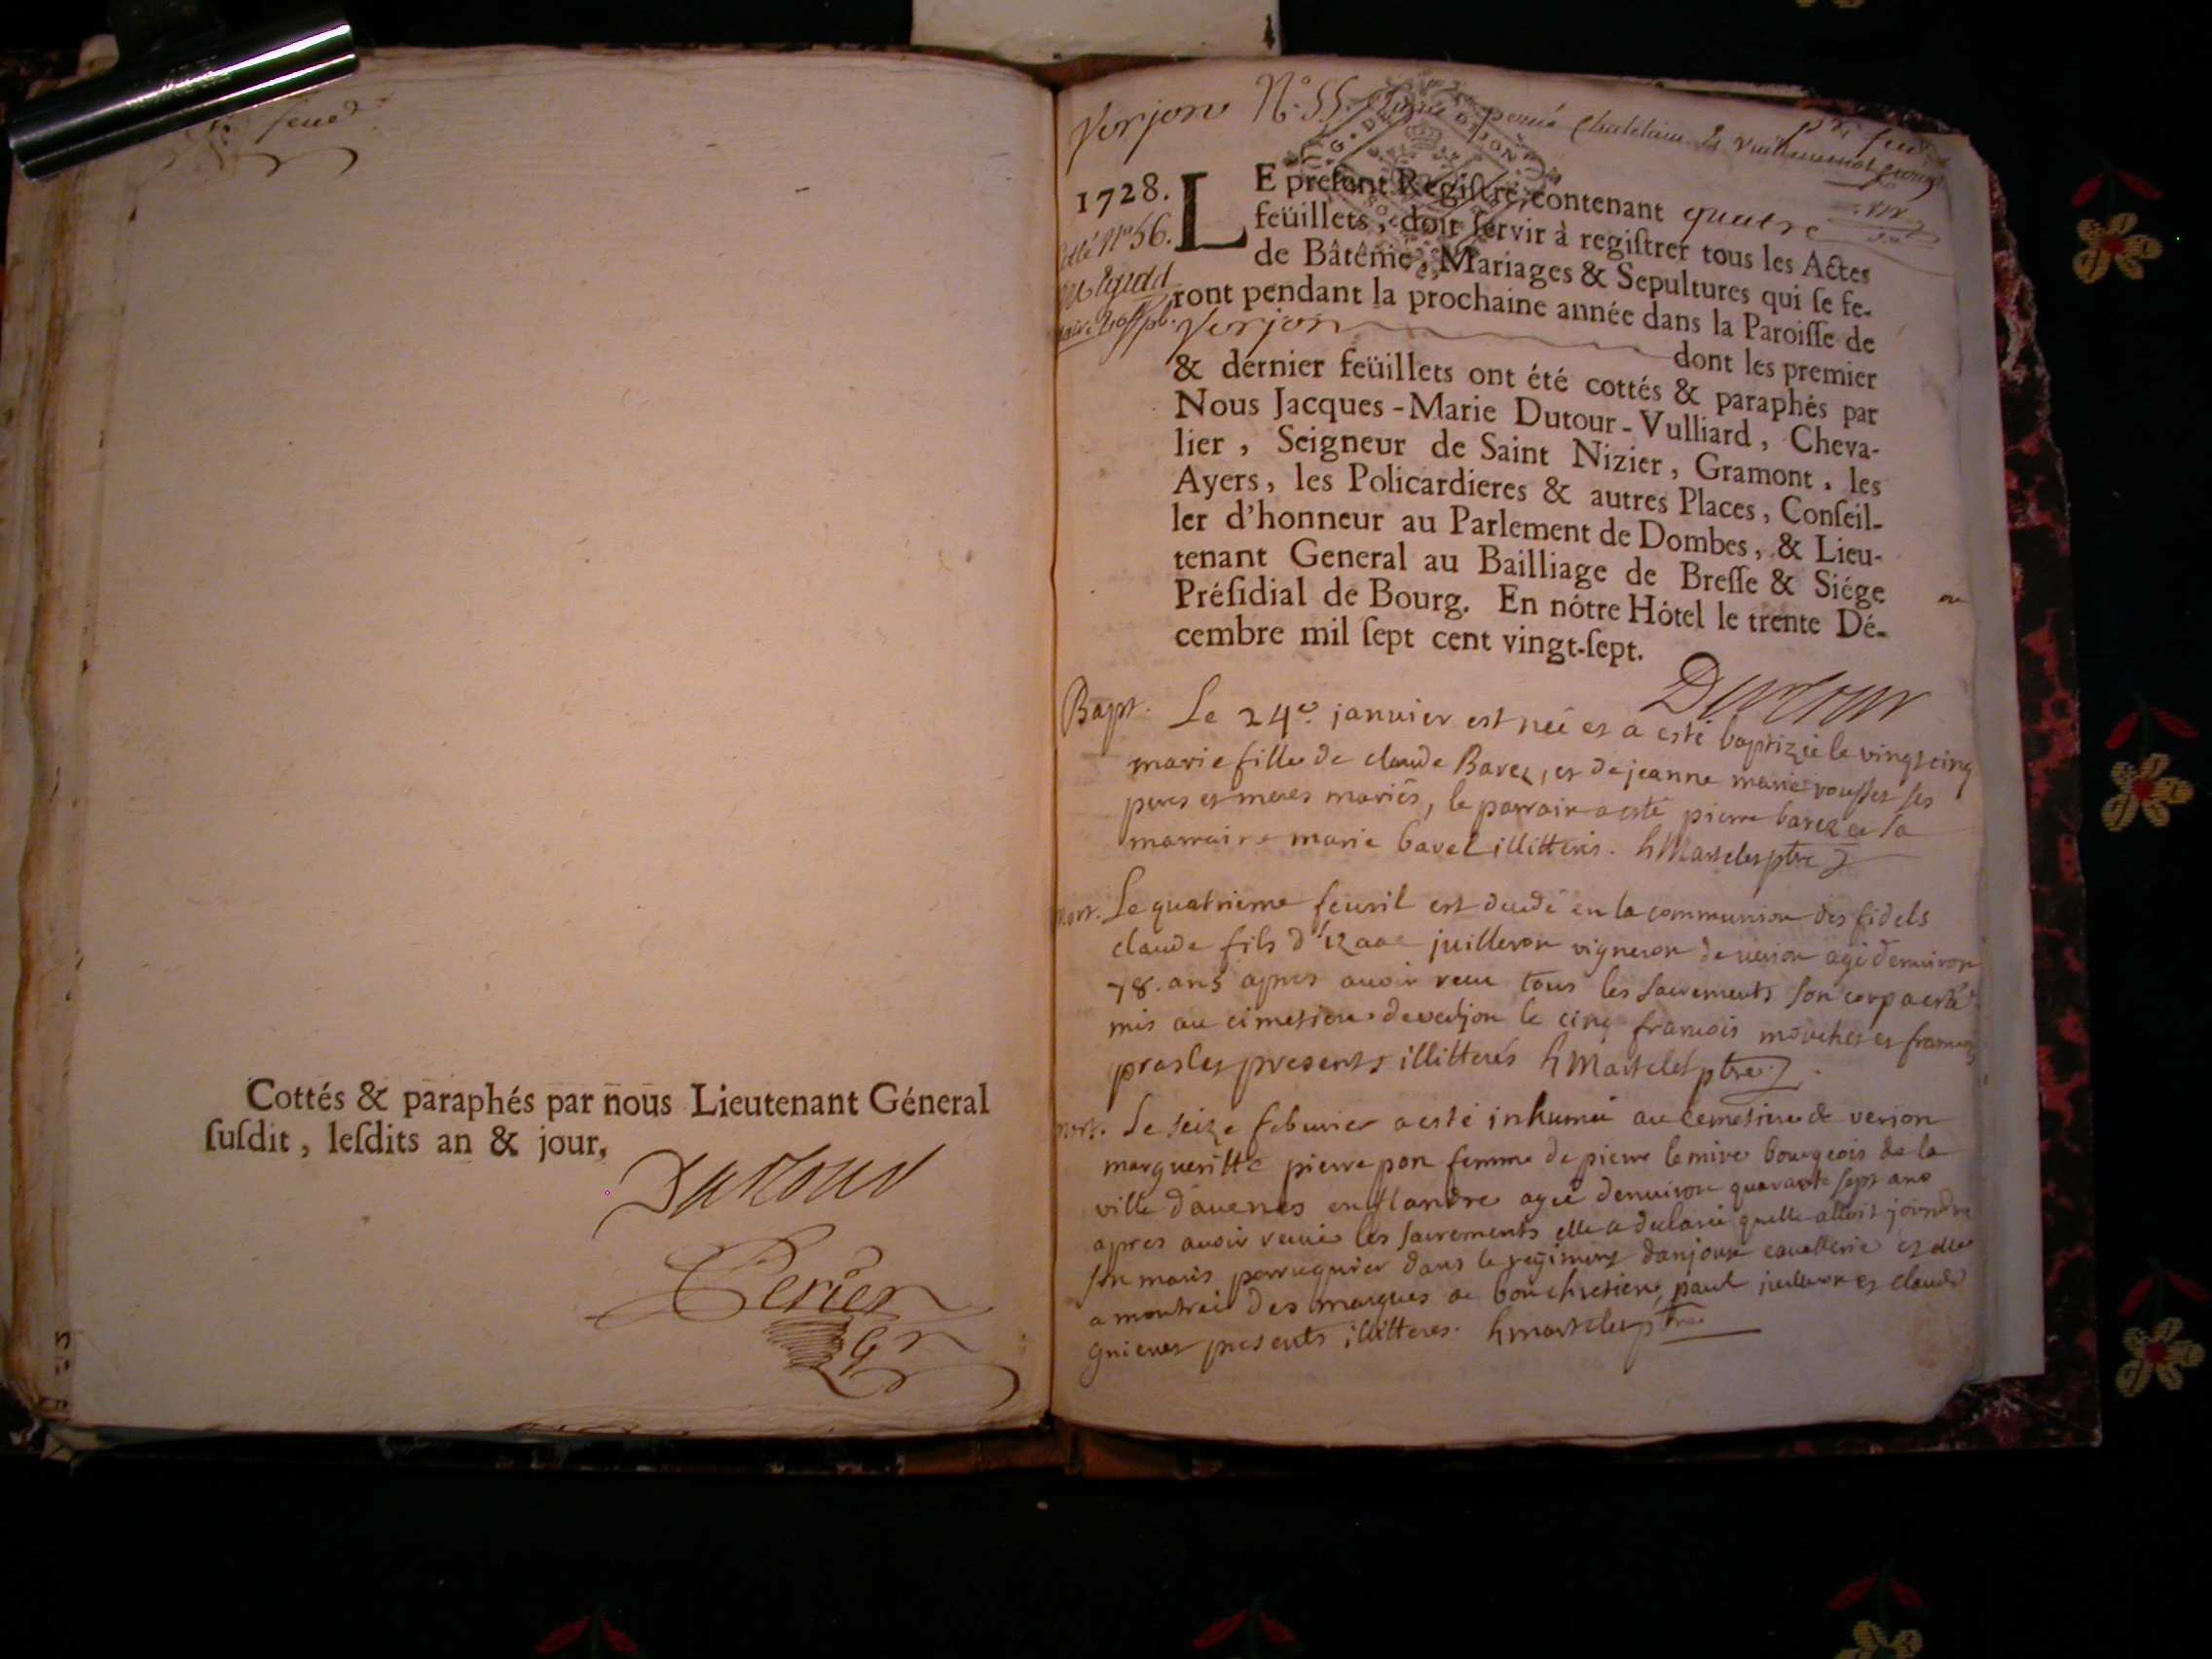 feüil
Cottés & paraphés par nous Lieutenant Géneral
ſuſdit, leſdits an & jour,
Dutour
Perier
Gr
Verjon N.º 55.
1728.
Cotté Nº 56.
LE preſent Regiſtre contenant quatre
feüillets, doit ſervir à regiſtrer tous les Actes
de Bâtême, Mariages & Sepultures qui ſe fe-
ront pendant la prochaine année dans la Paroiſſe de
Verjon dont les premier
& dernier feüillets ont été cottés & paraphés par
Nous Jacques-Marie Dutour-Vulliard, Cheva-
lier, Seigneur de Saint Nizier, Gramont, les
Ayers, les Policardieres & autres Places, Conſeil-
ler d'honneur au Parlement de Dombes, & Lieu-
tenant General au Bailliage de Breſſe & Siége
Préſidial de Bourg. En nôtre Hôtel le trente Dé-
cembre mil ſept cent vingt-ſept.
Dutour
Bapt. Le 24e. janvier est neé et a esté baptizée le vingt cinq
marie fille de claude Bavez, et de jeanne marie rousset ses
peres et meres mariés, le parrain a esté pierre bavez et la
marraine marie bavez illitterés. hMartelet ptre
mort. Le quatrieme feuril est decedé en la communion des fidels
claude fils d'izaac juilleron vigneron de verion agé denuiron
78. ans apres auoir receu tous les sacrements son corp a esté
mis au cimetiere de verjon le cinq francois mouchet et francois
praslet presents illitterés hMartelet ptre
mort. Le seize febuvier a esté inhumeé au cemetiere de verion
margueritte pierrepon femme de pierre lemire bourgeois de la
ville d'auenes en flandre ageé denuiron quarante sept ans
apres auoir receuë les sacrements elle a declareé quelle alloit joindre
son maris perruquier dans le regiment danjoux cauallerie et elle
a montreé des marques de bonchretiene, paul juilleron et claude
presents illitteres. hmartelet ptre